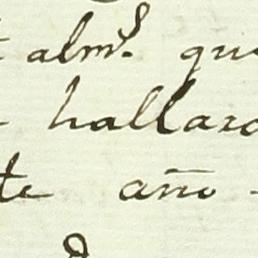 alm.ˢ qu
hallara
te año